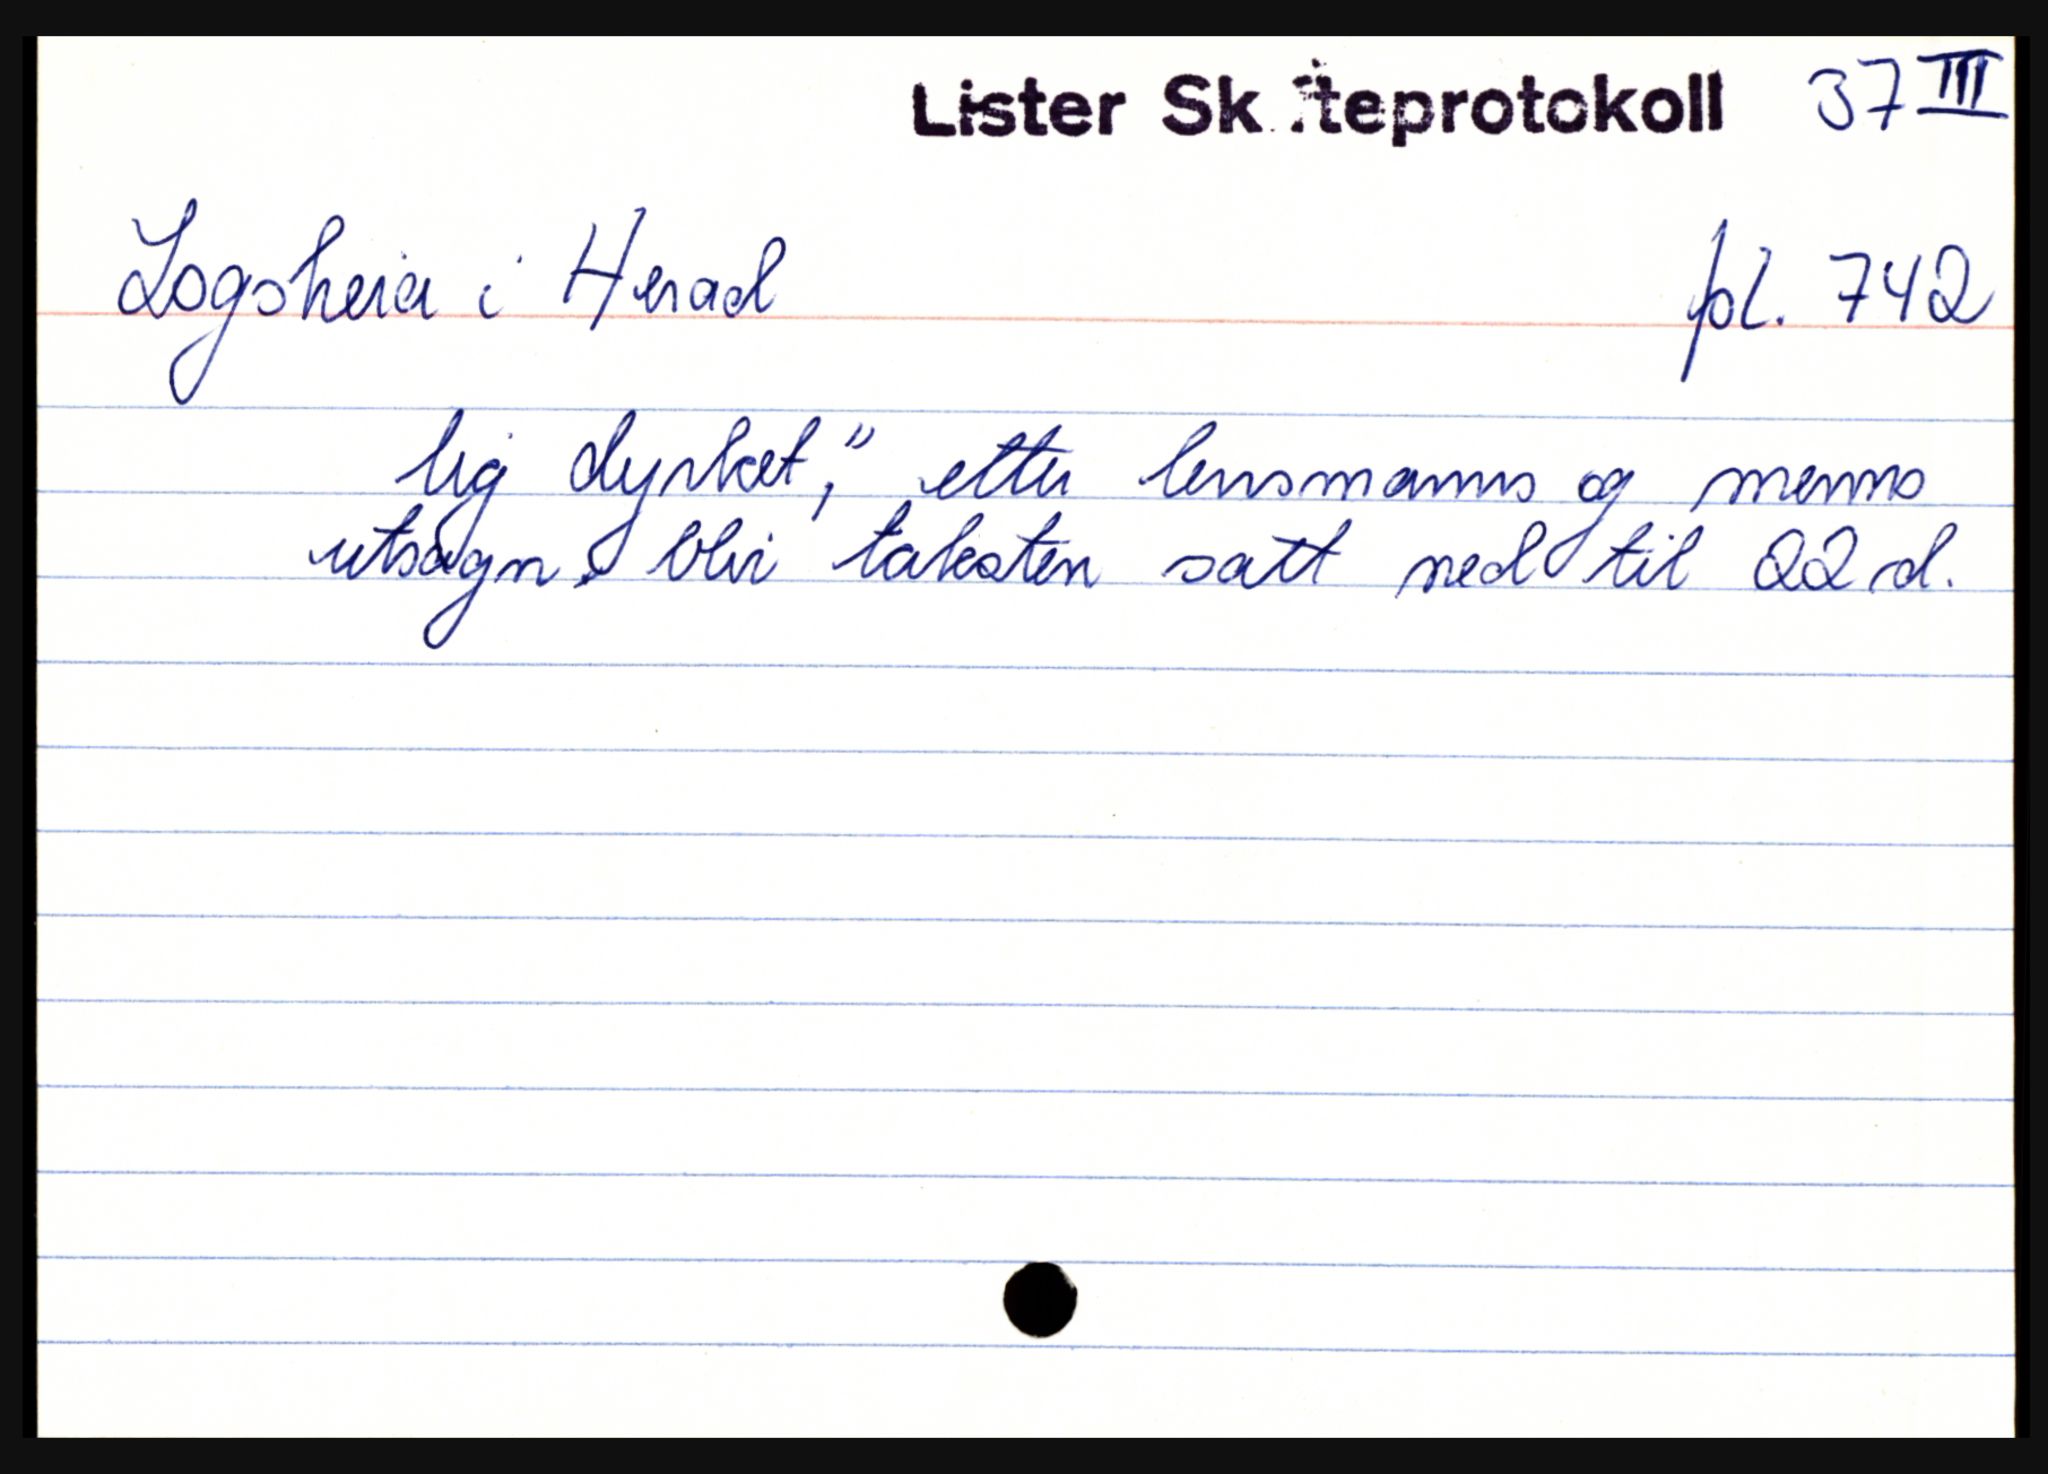 Lister Skøteprotokoll 37 III
Logsheia i Herad fol. 742
lig dyrket," etter lensmanns og menns
utsagn, blir taksten satt ned til 22 d.